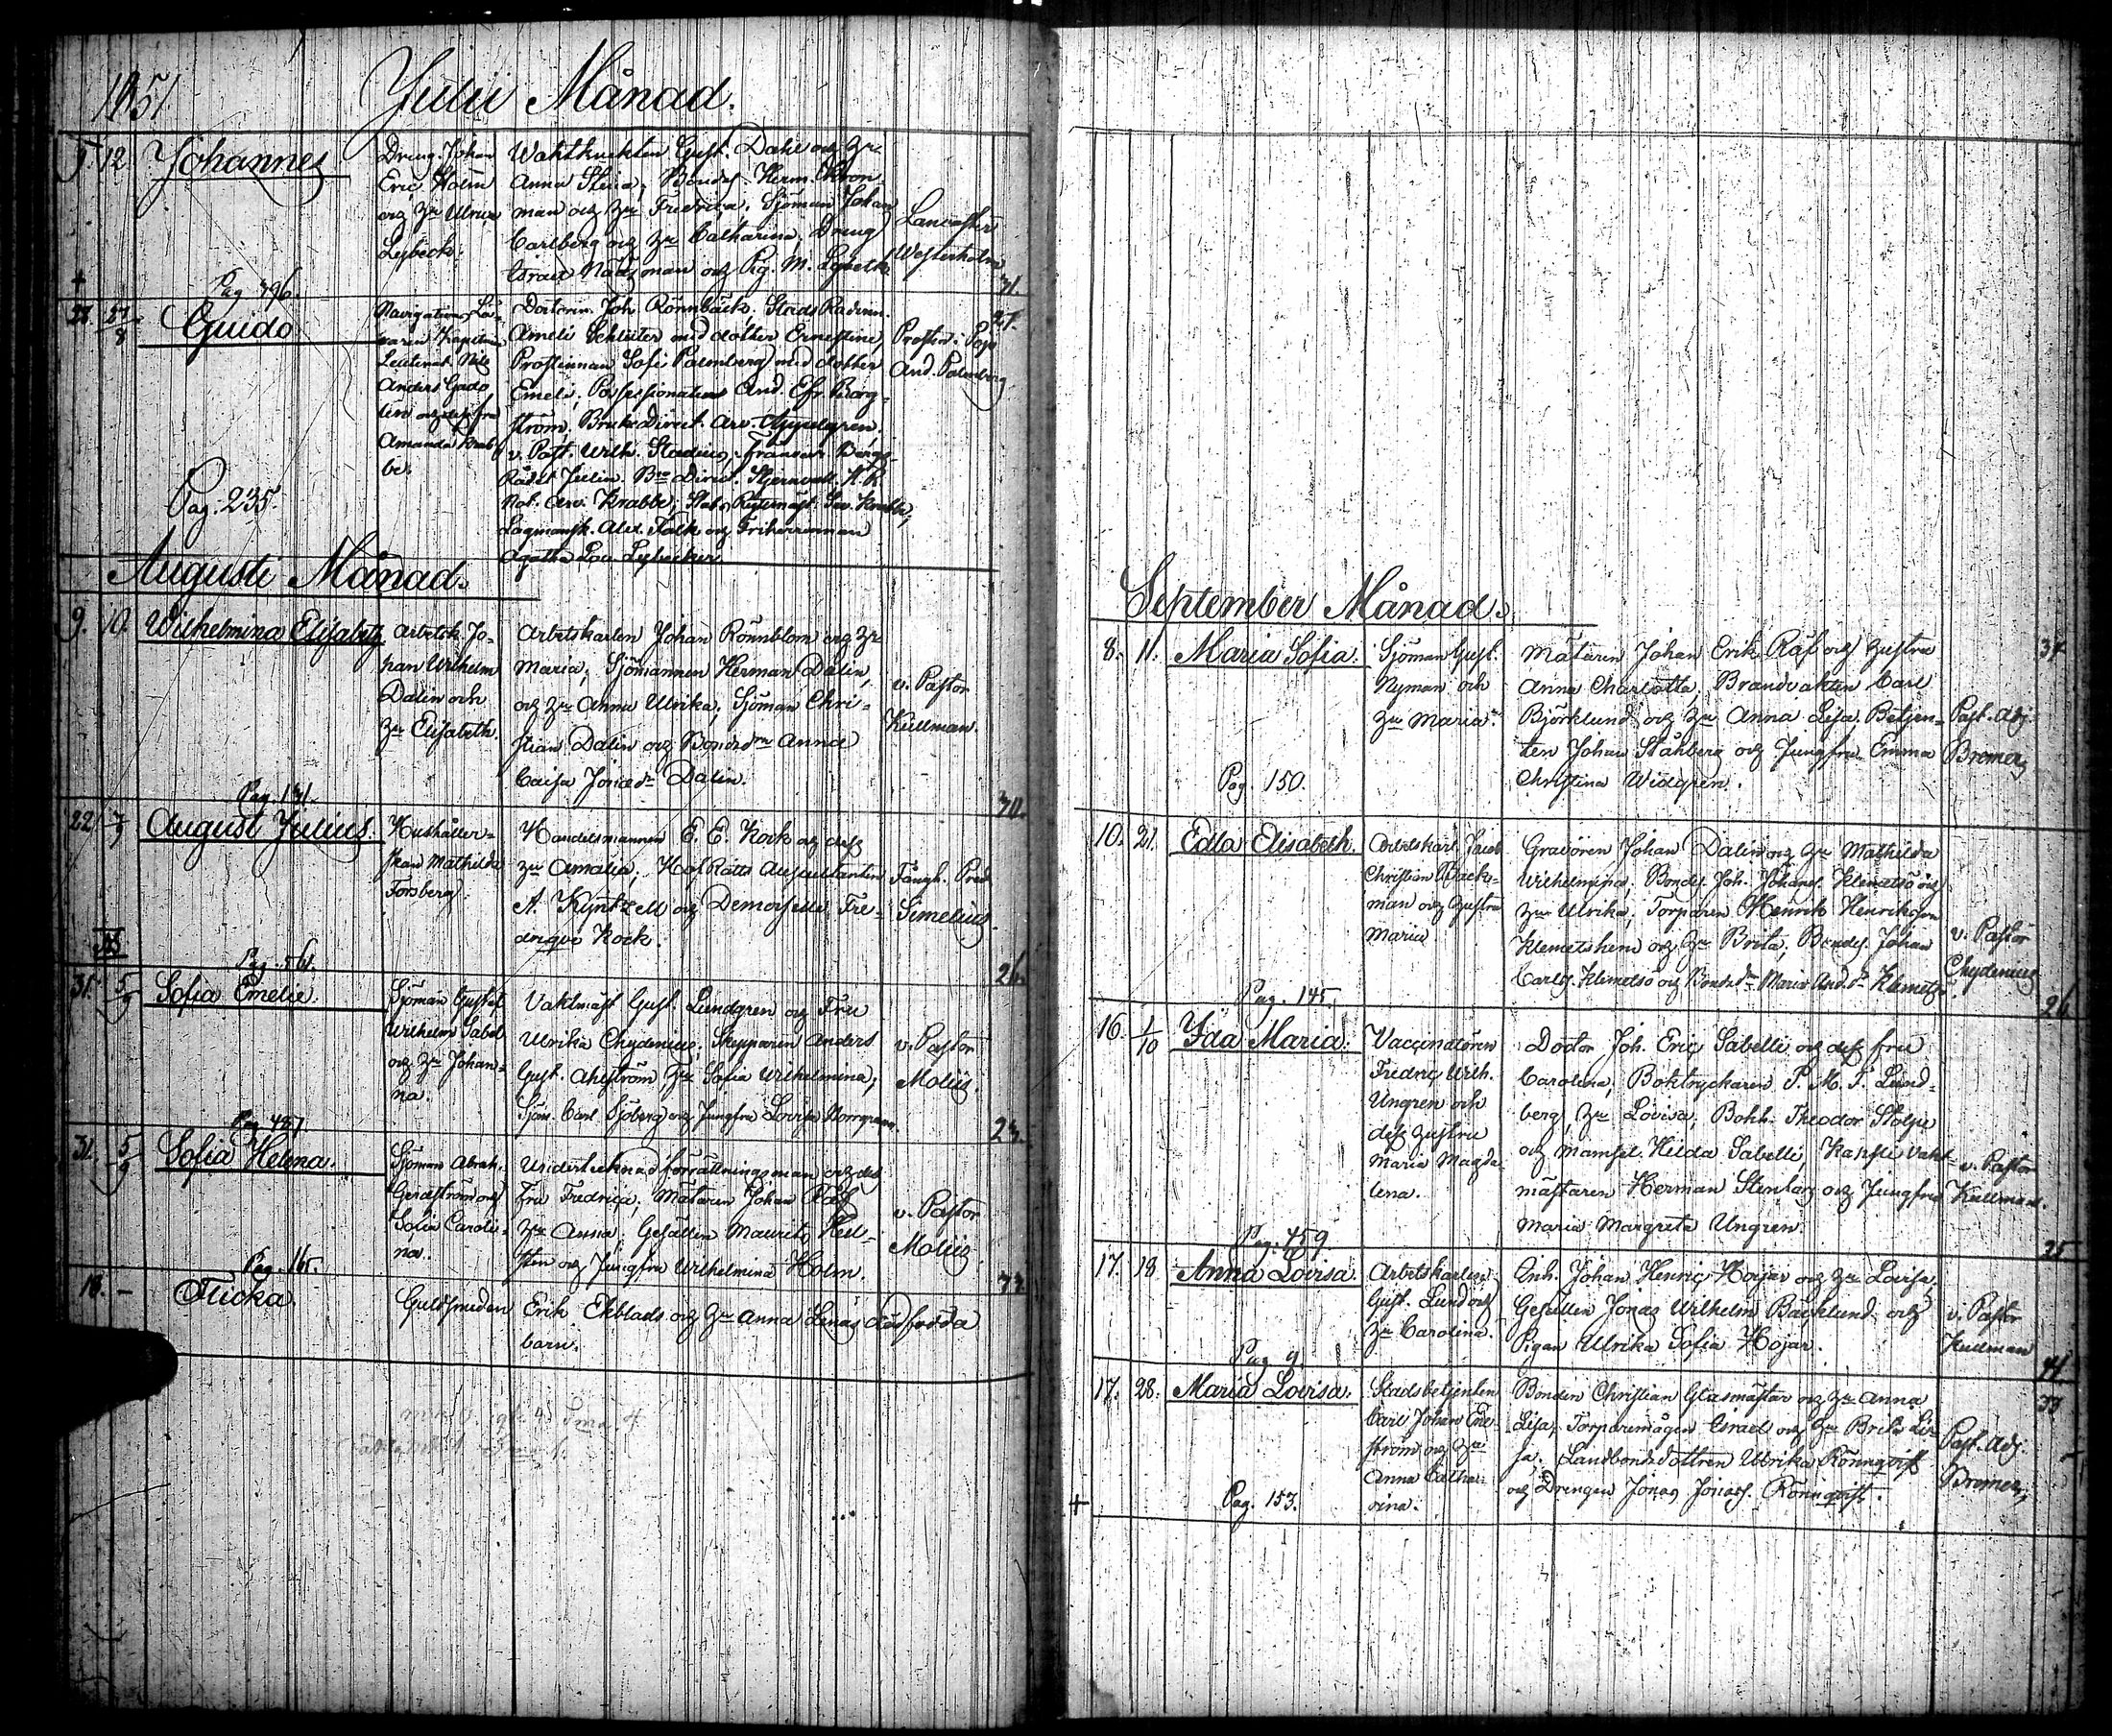 1851
Julii Månad.
9. 12. Johannes
Dreng. Johan
Eric Holm
och Hu Ulrica
Lybeck.
Wakthuekten Gust. Dahl och Hu
Anna Stina; Bondes. Herm. Kron-
man och Hu Fredrica. Sjöman Johan
Carlberg och Hu Catharina; Dreng
Israel Näsman och Pig. M. Lybeck
Lancasher
Westerholm
31.
+ Pag 496.
28. 27/8 Guido
Navigations Lä-
raren Kapitein
Leutenat. Nils
Anders Gado-
lin och dess fru
Amanda Krab-
be.
Doctorin. Joh. Rönnbäck. Stads Rådinn.
Ameli Schlüter med dotter Ernestine,
Prostinnan Sofi Palmberg med dotter
Emeli; Possessionaten And. Efr. Borg-
ström. Bruks Direct. Arv. Appelgren,
v. Past. Wilh. Stadius; Frånvar. Bergs-
Rådet Julin. Brs Direct. Stjernvall. H. R.
Not. Arv. Krabbe; Stabs Rytemäst. Krabbe;
Lagmansk. Alex. Falk och Friherrinnan
Agatha Lou. Lybecker.
27.
Prosten i Pojo
And. Palmberg
Pag. 235.
Augusti Månad.
9. 10. Wilhelmina Elisabeth
Arbetsk. Jo-
han Wilhelm
Dalin och
Hu Elisabeth.
Arbetskarlen Johan Rönnblom och Hu
Maria; Sjömannen Herman Dalin,
och Hu Anna Ulrika; Sjöman Chri-
stian Dalin och Bondedn Anna
Caisa Jonædr Dalin.
v. Pastor
Kullman.
Pag. 131.
30.
22. 7/9 August Julius.
Hushåller-
skan Mathilda
Forsberg.
Handelsmannen E. E. Kock och dess
Hu Amalia; Hof Rätts Auscultanten
A. Kyntzell och Demoiselle Fre-
drique Kock.
Fångh. Pred
Simelius.
Pag. 561.
26.
31. 5/9 Sofia Emelie.
Sjöman Gustaf
Wilhelm Sabel
och Hu Johan-
na.
Vaktmäst Gust. Lundgren och Fru
Ulrika Chydenius; Skepparen Anders
Gust. Ahlström Hu Sofia Wilhelmina;
Sjöm. Carl Sjöberg och Jungfru Lovisa Norrgrann.
v. Pastor
Moliis
Pag 487
23.
31. 5/9 Sofia Helena.
Sjöman Abrah.
Gerdström och
Sofia Caroli-
na.
Undertecknad förrättningsman och dess
Fru Fredrica; Mätaren Johan Räf
Hu Anna; Gesällen Maurits Hed-
sten och Jungfru Wilhelmina Holm.
v. Pastor
Moliis
Pag. 165.
33.
18. - Flicka.
Guldsmeden Erik Ekblads och Hu Anna Lenas dödfödda
barn.
September Månad.
8. 11. Maria Sofia.
Sjöman Gust.
Nyman och
Hu Maria.
Mätaren Johan Erik Räf och Hustru
Anna Charlotta; Brandvakten Carl
Björklund och Hu Anna Lisa. Betjen-
ten Johan Ståhlberg och Jungfru Emma
Christina Widgren.
Past. Adj.
Bremer
Pag. 150.
34.
10. 21. Edla Elisabeth.
Arbetskarl Jacob
Christian Backs-
man och Hustru
Maria
Gravören Johan Dalin och Hu Mathilda
Wilhelmina. Bondes. Joh. Johans. Klemetsö och
Hu Ulrika; Torparen Henrik Henrikson
Klemetshem och Hu Brita; Bondes. Johan
Carls. Klemetsö och Bondedr Maria And. dr Klemetsö.
v. Pastor
Chydenius
Pag. 145.
26.
16. 1/10 Ida Maria.
Vaccinatören
Fredric Wilh.
Ungren och
dess Hustru
Maria Magda-
lena.
Doctor Joh. Eric Sabelli och dess fru
Carolina; Boktryckaren P. M. J. Lund-
berg, Hu Lovisa; Bohh. Theodor Stolpe
och Mamsel. Hilda Sabelli; Kansli Vakt-
mästaren Herman Stenberg och Jungfru
Maria Margreta Ungren.
v. Pastor
Kullman.
Pag. 459.
35.
17. 18. Anna Lovisa.
Arbetskarlen
Gust. Lund och
Hu Carolina.
Enh. Johan Henric Hojar och Hu Lovisa.
Gesällen Jonas Wilhelm Backlund och
Pigan Ulrika Sofia Hojar.
v. Pastor
Kullman
Pag. 9.
41.
17. 28. Maria Lovisa.
Stadsbetjenten
Carl Johan
ström och Hu
Anna Catha-
rina.
Bonden Christian Glasmästar och Hu Anna
Lisa; Torparemågen Israel och Hu Brita Li-
sa; Landbondedottren Ulrika Rönnqvist
och Drengen Jonas Jonass. Rönnqvist.
Past. Adj.
Bremer.
33
+ Pag. 153.